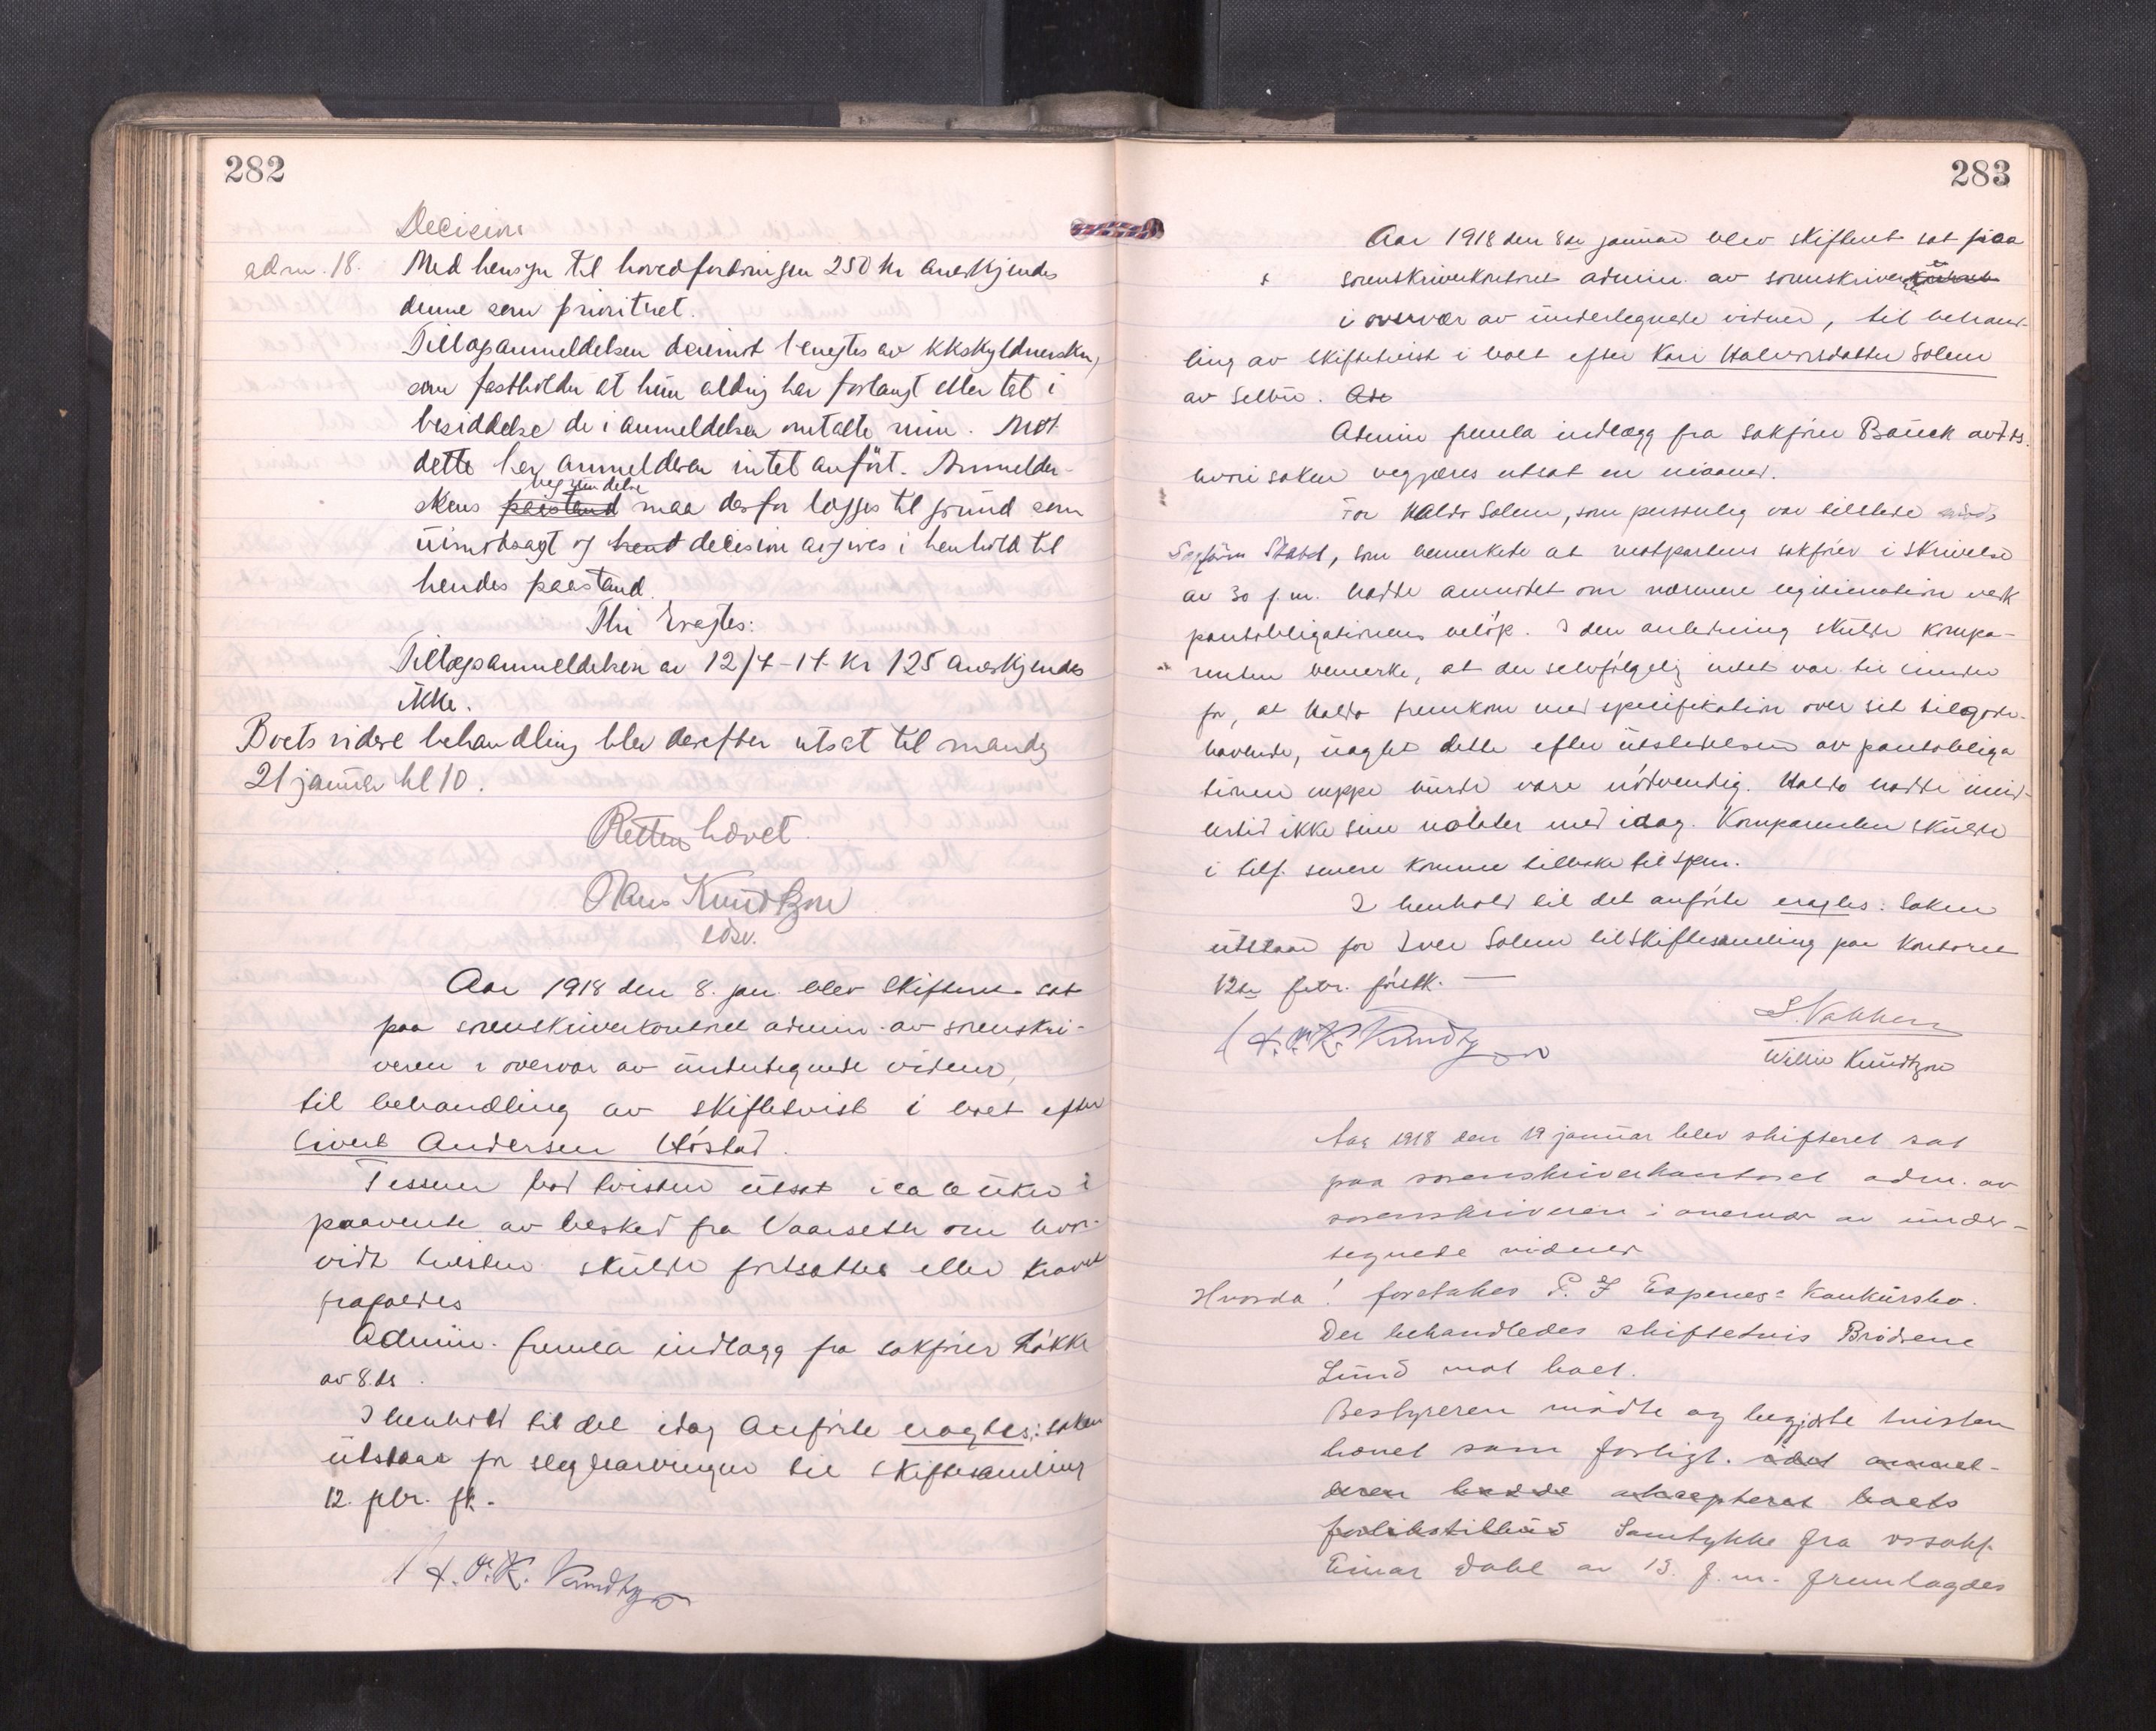 282
Decision
ad nr. 18. Med hensyn til hovedfordringen 250 kr anerkjendes
denne som prioritret.
Tillægsanmeldelsen derimot benegtes av kkskyldnersken,
som fastholder at hun aldrig har forlangt eller tat i
besiddelse de i anmeldelsen omtalte . Mot
dette har anmelderen intet anført. Anmelder-
skens paastand begrundelse maa derfor lægges til grund som
uimotsagt og hend decision avgives i henhold til
hendes paastand.
Thi Eragtes:
Tillægsanmeldelsen av 12/4-14 Kr 125 anerkjendes
ikke.
Boets videre behandling blev derefter utsat til mandag
21 januar kl 10.
Retten hævet.
Hans Knudtzon
edsv.
Aar 1918 den 8. jan. blev skifteret sat
paa sorenskriverkontoret admin. av sorenskri-
veren i overvær av undertegnede vidner,
til behandling av skiftetvist i boet efter
Sivert Andersen Høstad.
Tessem bad tvisten utsat i ca 6 uker i
paavente av besked fra Vaarseth om hvor-
vidt tvisten skulde fortsættes eller kravet
frafaldes
Admin. fremla indlægg fra sakfører Løkke
av 8. ds.
I henhold til det idag anførte eragtes: saken
utstaar for slegtsarvingene til skiftesamling
12. febr. fk.
H. P. K. Knudtzon
283
Aar 1918 den 8de januar blev skifteret sat paa
sorenskriverkontoret admin. av sorenskriveren kontoret
i overvær av undertegnede vidner, til behand-
ling av skiftetvist i boet efter Kari Halvorsdatter Solem
av Selbu. Ad
Admin fremla indlægg fra sakfører Bauck av d.ds.
hvori saken begjæres utsat en maaned.
For Haldo Solem, som personlig var tilstede
Sagfører Stabel, som bemerkete at motpartens sakfører i skrivelse
av 30 f. m. hadde anmodet om nærmere legitimation
pantobligationens beløp. I den anledning skulde kompa-
renten bemerke, at der selvfølgelig intet var til hinder
for, at Haldo fremkom med specifikation over sit tilgode-
havende, uagtet dette efter utstedelsen av pantobliga
tionen neppe burde være nødvendig. Haldo hadde imid-
lertid ikke sine notater med idag. Komparenten skulde
i tilf. senere komme tilbake til spm.
I henhold til det anførte eragtes: Saken
utstaar for Iver Solem til skiftesamling paa kontoret
12te febr. førstk. —
H. P. K. Knudtzon
S. Nakken
Willie Knudtzon
Aar 1918 den 19 januar blev skifteret sat
paa sorenskriverkontoret adm. av
sorenskriveren i overvær av under-
tegnede vidner
Hvorda! foretakes P. J Espenes' konkursbo.
Der behandledes skiftetvis Brødrene
Lund mot boet.
Bestyreren mødte og begjærte tvisten
hævet som forligt. idet anmel-
deren hadde akcepteret boets
forlikstilbud Samtykke fra ossakf.
Einar Dahl av 13. f. m. fremlagdes